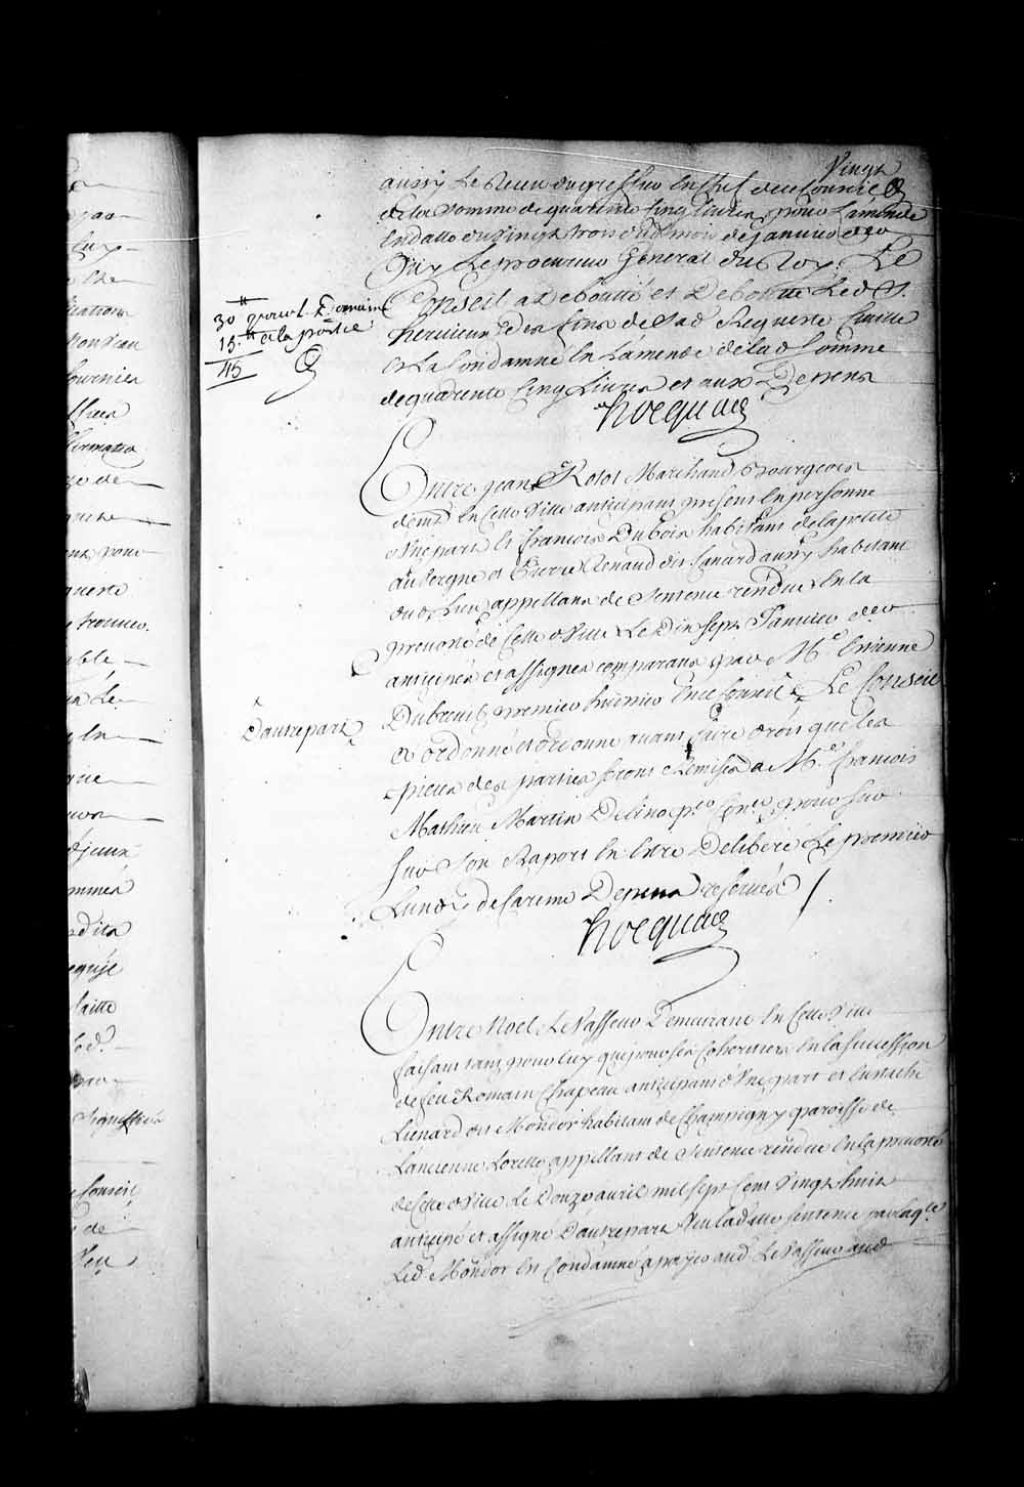 Vingt
aussy le Receu du greffier En chef de ce Conseil
de la Somme de quarente Cinq livres pour L'amende
En datte du Vingt trois dud. mois de Janvier der.
Ouy Le procureur General du Roy. Le
Conseil a Deboutté et Deboute Led. S.
hervieux Des fins de Sad. Requeste Civille
Et La Condamné En L'amende de lad. Somme
de quarente Cinq Livres et aux Depens
hocquart
30 ₶ pour L. Domaine
15 ₶ a la partie
45
Entre Jean Rotot Marchand Bourgeois
demt. En Cette Ville anticipant present En personne
d'Une part Et francois Dubois habitant de la petite
auvergne et Pierre Renaud dit Canard aussy habitant
dud. Lieu appellans de Sentence rendue En la
prevosté de Cette Ville Le Dix sept Janvier der.
anticipés et assignés comparans par Me. Estienne
Dubreuil premier huissier En ce Conseil
D'autre part
Le Conseil
a ordonné et ordonne avant faire droit que les
pieces des parties seront Remises a Me. francois
Mathieu Martin Delino pr. Conr. pour Sur
Sur Son Raport En Estre Deliberé Le premier
Lundy de Caresme Depens reservés /.
hocquart
Entre Noel Levasseur Demeurant En Cette Ville
faisant tant pour luy que pour ses Coheritiers En la succession
de feu Romain Chapeau anticipant d'Une part et Eustache
Lienard dit Mondor habitant de Champigny paroisse de
Lancienne Lorette appellant de Sentence rendue En la prevosté
de Cette Ville Le Douze avril mil sept Cent Vingt huit
anticipé et assigné D'autre part Veu lad. Sentence par laqle.
Led. Mondor Est Condamné a payer aud. Levasseur aud.